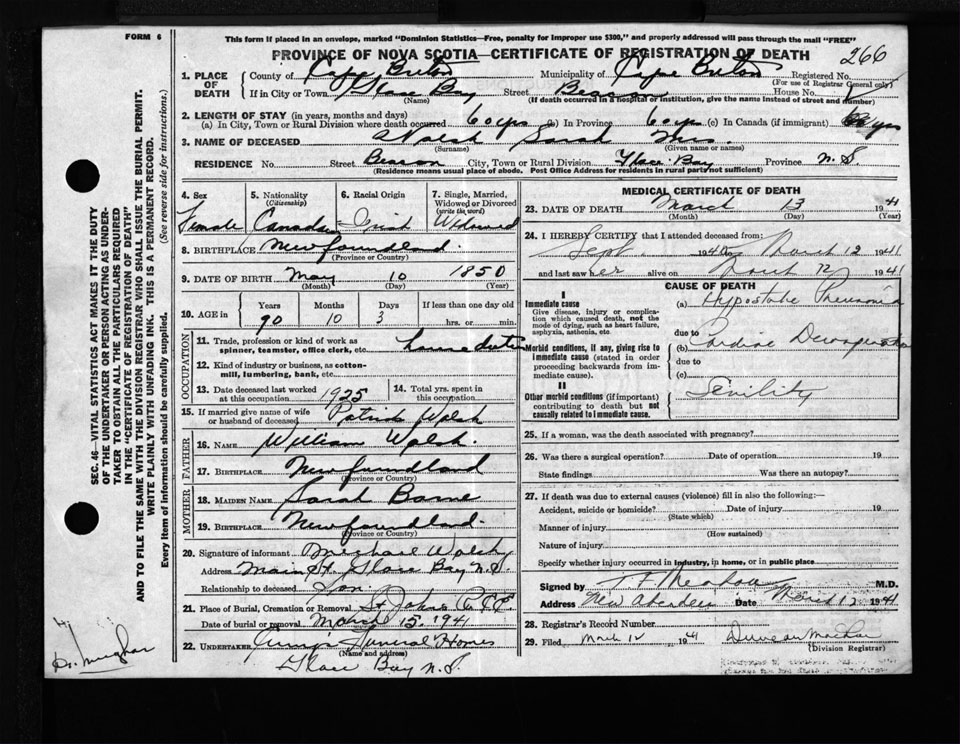 FORM 6
This form if placed in an envelope, marked "Dominion Statistics—Free, penalty for improper use $300," and properly addressed will pass through the mail "FREE"
PROVINCE OF NOVA SCOTIA—CERTIFICATE OF REGISTRATION OF DEATH
266
1. PLACE OF DEATH County of Cape Breton Municipality of Cape Breton Registered No.
(For use of Registrar General only)
If in City or Town Glace Bay Street Beacon House No.
(Name) (If death occurred in a hospital or institution, give the name instead of street and number)
2. LENGTH OF STAY (in years, months and days)
(a) In City, Town or Rural Division where death occurred 60 yrs (b) In Province 60 yrs (c) In Canada (if immigrant) yrs
3. NAME OF DECEASED Walsh Sarah Mrs.
(Surname) (Given name or names)
RESIDENCE No. Street Beacon City, Town or Rural Division Glace Bay Province N.S.
(Residence means usual place of abode. Post Office Address for residents in rural parts not sufficient)
4. Sex Female
5. Nationality (Citizenship) Canadian
6. Racial Origin Irish
7. Single, Married, Widowed or Divorced (write the word) Widowed
8. BIRTHPLACE Newfoundland.
(Province or Country)
9. DATE OF BIRTH May 10 1850
(Month) (Day) (Year)
10. AGE in Years 90 Months 10 Days 3 If less than one day old hrs. or min.
OCCUPATION
11. Trade, profession or kind of work as spinner, teamster, office clerk, etc. home duties
12. Kind of industry or business, as cotton-mill, lumbering, bank, etc.
13. Date deceased last worked at this occupation 1925
14. Total yrs. spent in this occupation
15. If married give name of wife or husband of deceased Patrick Walsh
FATHER
16. NAME William Walsh
17. BIRTHPLACE Newfoundland
(Province or Country)
MOTHER
18. MAIDEN NAME Sarah
19. BIRTHPLACE Newfoundland.
(Province or Country)
20. Signature of informant Michael Walsh
Address Main St. Glace Bay N.S.
Relationship to deceased Son
21. Place of Burial, Cremation or Removal St. Johns
Date of burial or removal March 15, 1941
22. UNDERTAKER Funeral Homes
(Name and address)
Glace Bay N.S.
MEDICAL CERTIFICATE OF DEATH
23. DATE OF DEATH March 13 1941
(Month) (Day) (Year)
24. I HEREBY CERTIFY that I attended deceased from:
Sept 1940 to March 12 1941
and last saw her alive on March 12 1941
CAUSE OF DEATH
I
Immediate cause
Give disease, injury or complication which caused death, not the mode of dying, such as heart failure, asphyxia, asthenia, etc.
(a) Hypostatic Pneumonia
due to
Morbid conditions, if any, giving rise to immediate cause (stated in order proceeding backwards from immediate cause).
(b) Cardiac Decompensation
due to
(c)
II
Other morbid conditions (if important) contributing to death but not causally related to immediate cause.
Senility
25. If a woman, was the death associated with pregnancy?
26. Was there a surgical operation? Date of operation 19
State findings Was there an autopsy?
27. If death was due to external causes (violence) fill in also the following:—
Accident, suicide or homicide? Date of injury 19
(State which)
Manner of injury
(How sustained)
Nature of injury
Specify whether injury occurred in industry, in home, or in public place
Signed by M.D.
Address New Aberdeen Date March 12 1941
28. Registrar's Record Number
29. Filed March 12 1941
(Division Registrar)
SEC. 46—VITAL STATISTICS ACT MAKES IT THE DUTY
OF THE UNDERTAKER OR PERSON ACTING AS UNDER-
TAKER TO OBTAIN ALL THE PARTICULARS REQUIRED
IN THE "CERTIFICATE OF REGISTRATION OF DEATH"
AND TO FILE THE SAME WITH THE DIVISION REGISTRAR WHO SHALL ISSUE THE BURIAL PERMIT.
WRITE PLAINLY WITH UNFADING INK. THIS IS A PERMANENT RECORD.
Every item of information should be carefully supplied. (See reverse side for instructions.)